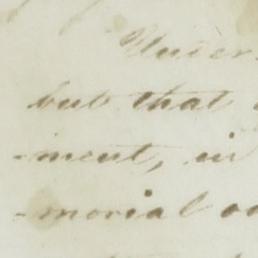 Under
but that
-ment, in
-morial